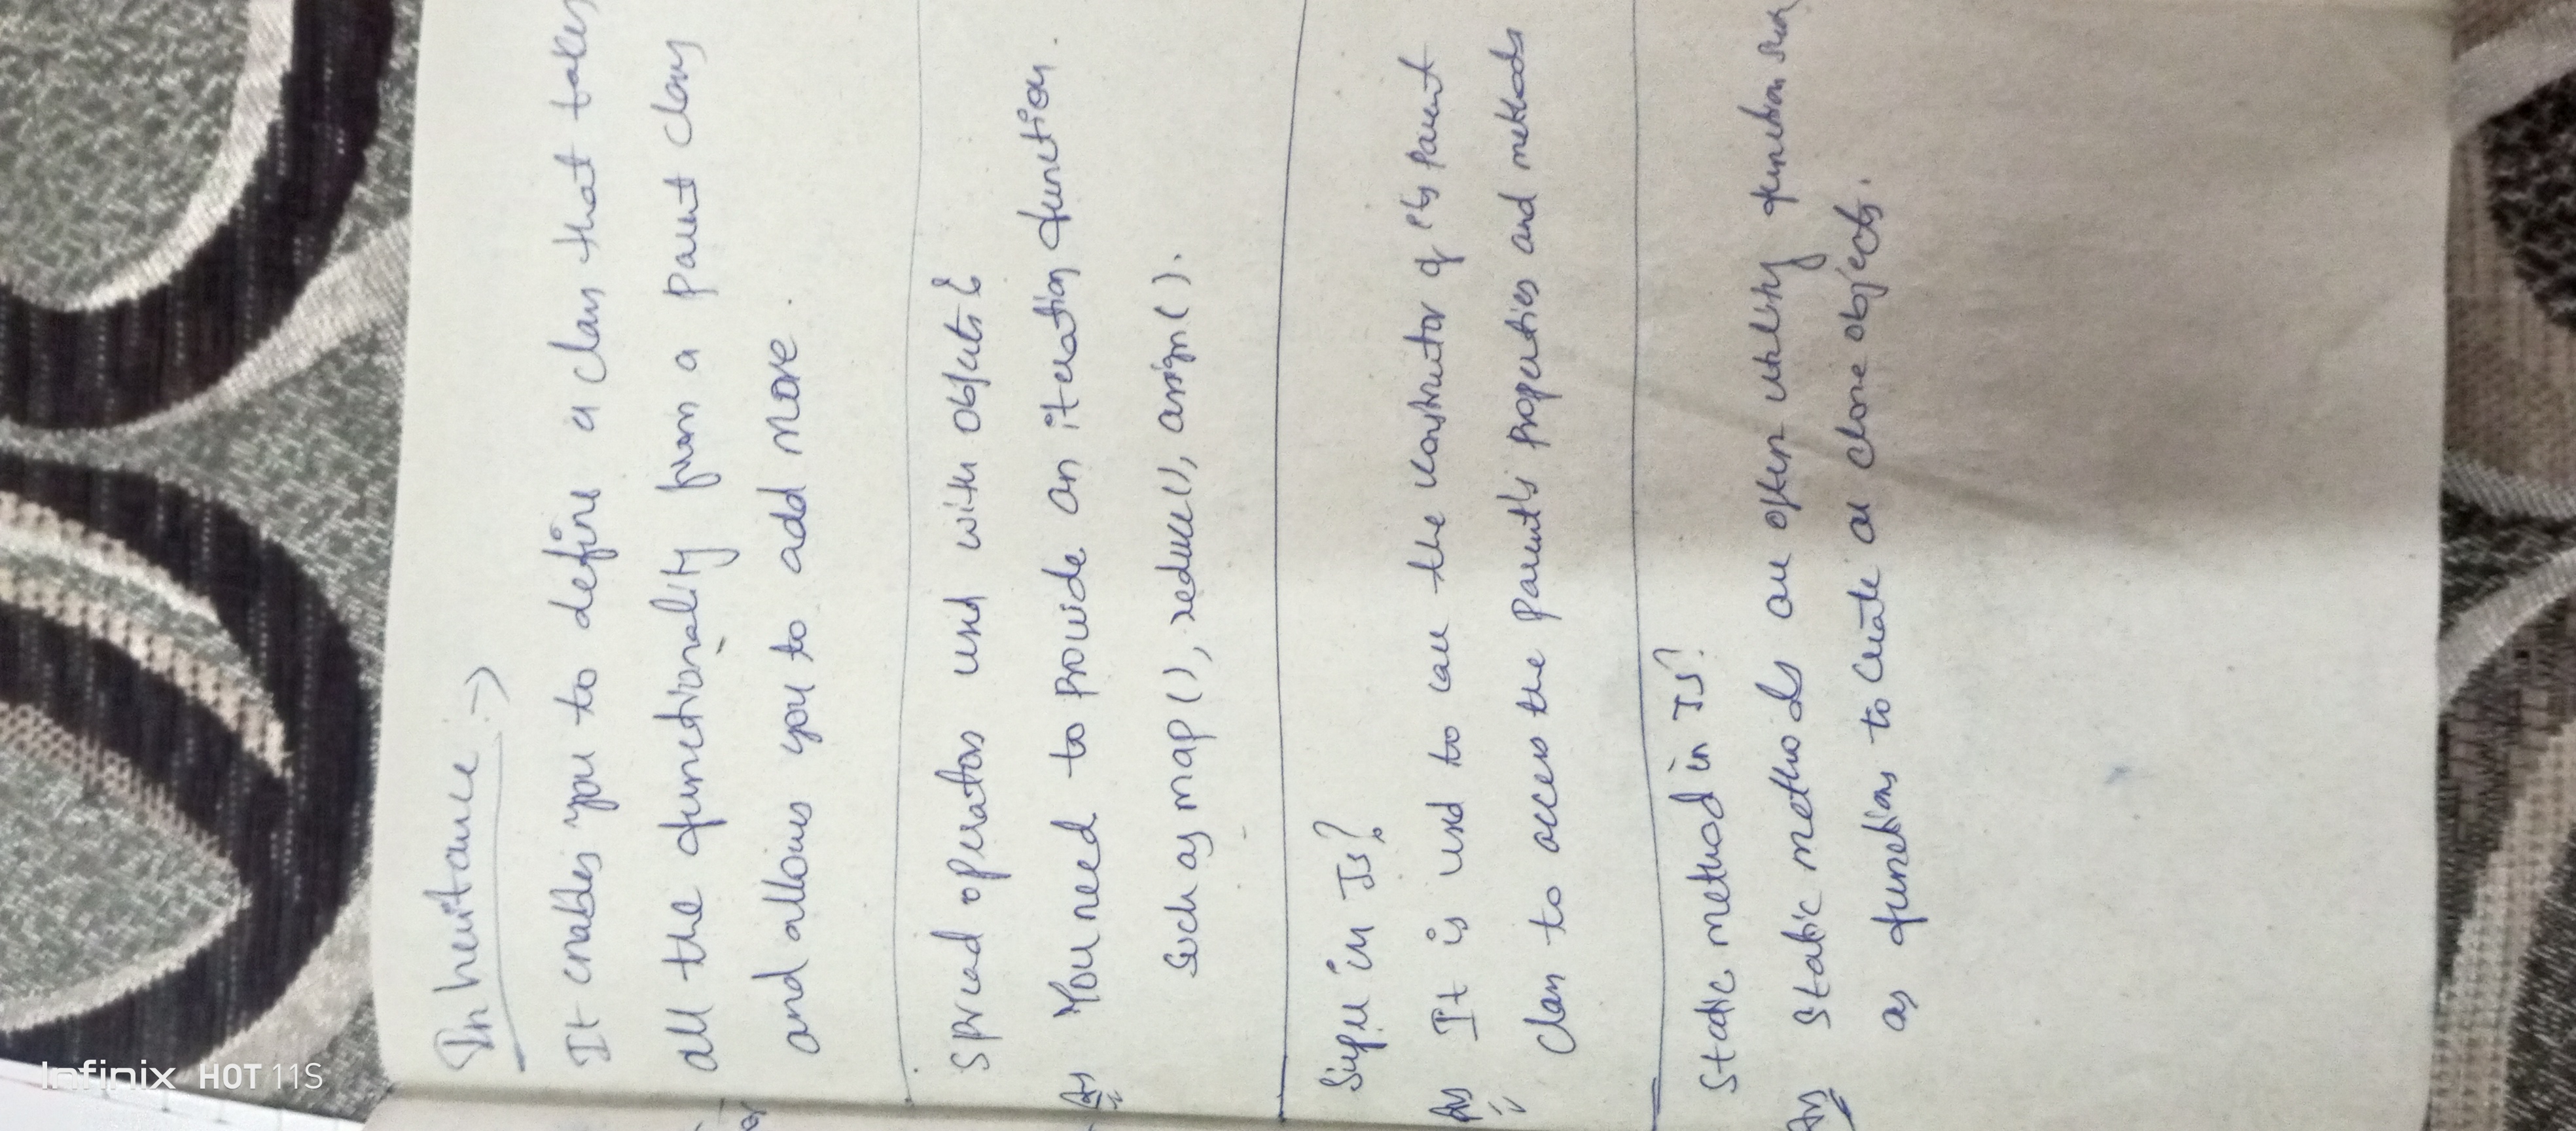 Inheritance :->
It enables you to define a class that takes
all the functionality from a parent class
and allows you to add more.
Spread operators used with objects?
Ans You need to provide an iteration function
such as map(), reduce(), assign().
Super in Js?
Ans It is used to call the constructor of its parent
class to access the parent's properties and methods
Static method in JS?
Ans Static methods are often utility functions such
as functions to create or clone objects.
or
Infinix HOT 11S